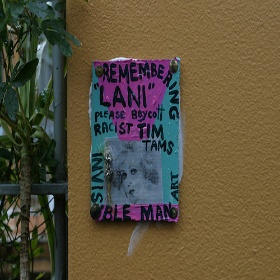 REMEMBERING
"LANI"
PLEASE BOYCOTT
RACIST TIM
TAMS
ART
IBLE MAN
SIANI